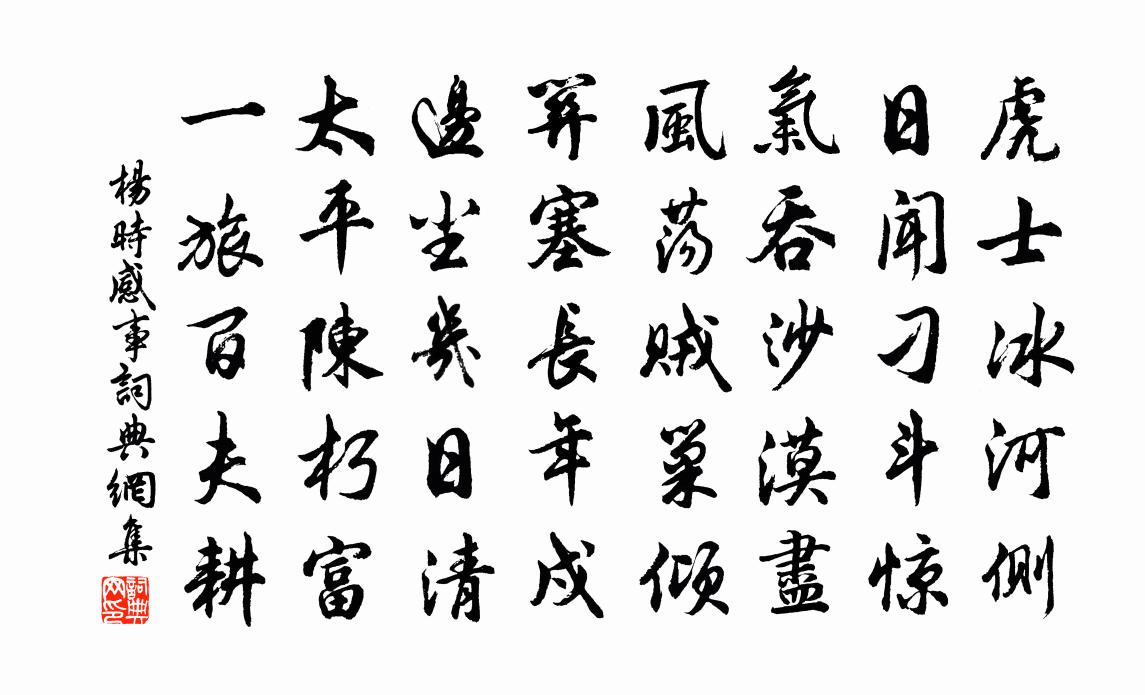 虎士冰河側
日聞刁斗惊
氣吞沙漠盡
風蕩賊巢傾
笄塞長年戍
邊坐幾日清
太平陳朽富
一旅百夫耕
楊時感事詞典網集
詞典网印